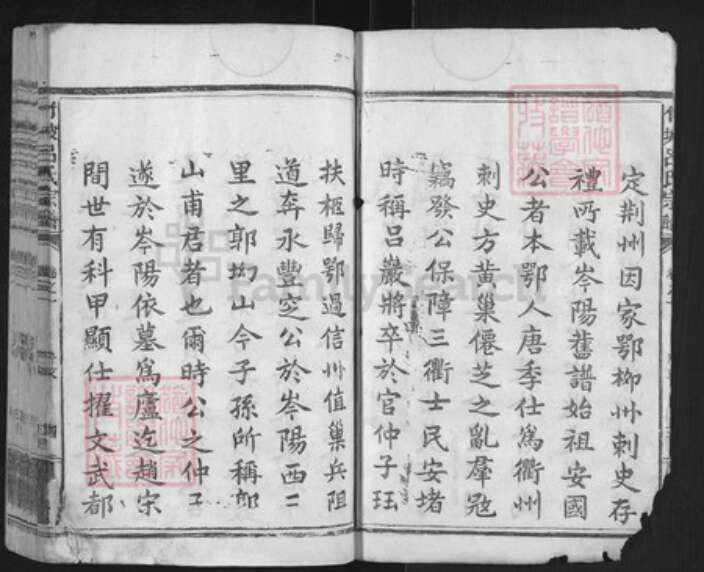 定荆州因家鄂柳州刺史存
禮所載岑陽舊譜始祖安國
公者本鄂人唐季仕為衢州
刺史方黄巢僊芝之亂羣冦
竊發公保障三衢士民安堵
時稱吕嚴將卒於官仲子珏
扶柩歸鄂過信州值巢兵阻
道奔永豐窆公於岑陽西二
里之郭坳山今子孫所稱郭
山甫君者也爾時公之仲子
遂於岑陽依墓為廬迄趙宋
間世有科甲顯仕擢文武都
吕氏宗譜
FamilySearch